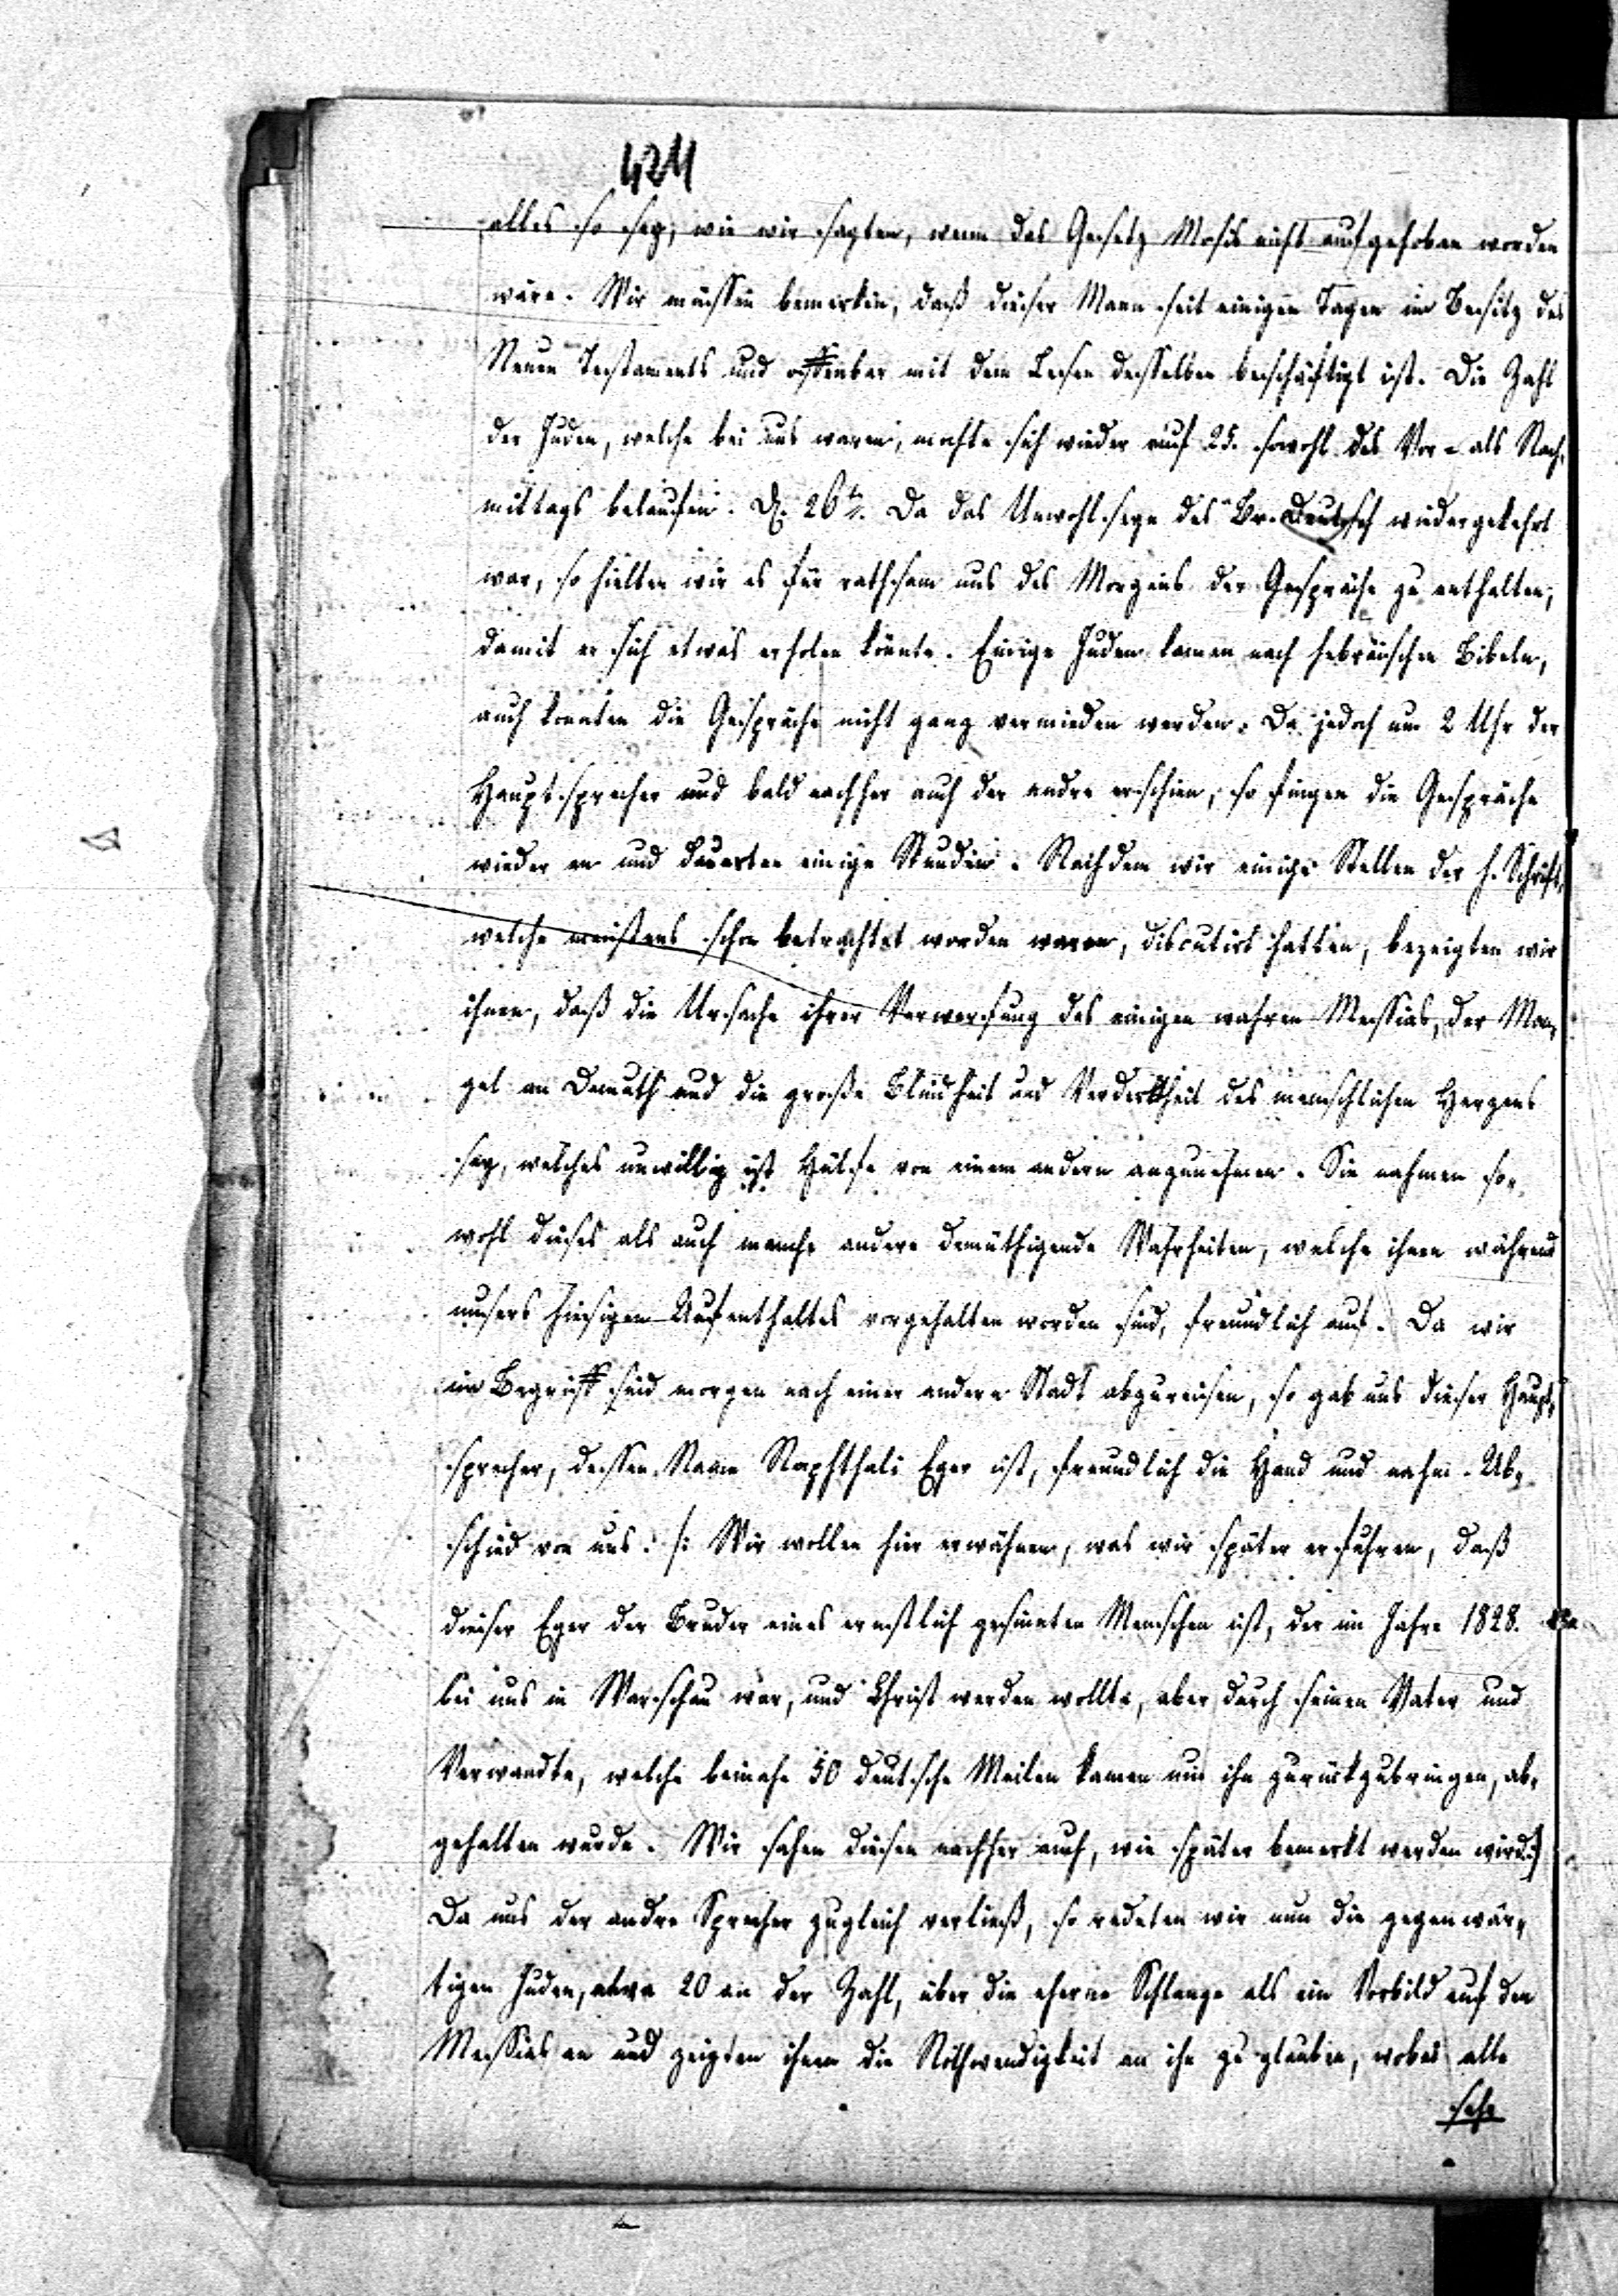 421
alles so sey, wie wir sagten, wenn das Gesetz Mosis nicht aufgehoben worden
wäre. Wir müssen bemerken, daß dieser Mann seit einigen Tagen im Besitz des
Neuen Testaments und offenbar mit dem Lesen desselben beschäftigt ist. Die Zahl
der Juden, welche bei uns waren, mochte sich wieder auf 25. sowohl des Vor- als Nach-
mittags belaufen. D. 26t. Da das Unwohlseyn des Br. Deutsch wiedergekehrt
war, so hielten wir es für rathsam uns des Morgens der Gespräche zu enthalten,
damit er sich etwas erholen könnte. Einige Juden kamen nach hebräischen Bibeln,
auch konnten die Gespräche nicht ganz vermieden werden. Da jedoch um 2 Uhr der
Hauptsprecher und bald nachher auch der andre erschien, so fingen die Gespräche
wieder an und dauerten einige Stunden. Nachdem wir einige Stellen der h. Schrift,
welche meistens schon betrachtet worden waren, discutirt hatten, bezeigten wir
ihnen, daß die Ursache ihrer Verwerfung des einigen wahren Messias, der Man-
gel an Demuth und die große Blindheit und Verderbtheit des menschlichen Herzens
sey, welches unwillig ist Hülfe von einem andern anzunehmen. Sie nahmen so-
wohl dieses als auch manche andere demüthigende Wahrheiten, welche ihnen während
unsers hiesigen Aufenthaltes vorgehalten worden sind, freundlich auf. Da wir
im Begriff sind morgen nach einer andern Stadt abzureisen, so gab uns dieser Haupt-
sprecher, dessen Name Naphthali Eger ist, freundlich die Hand und nahm Ab-
schied von uns. /: Wir wollen hier erwähnen, was wir später erfuhren, daß
dieser Eger der Bruder eines ernstlich gesinnten Menschen ist, der im Jahre 1828.
bei uns in Warschau war, und Christ werden wollte, aber durch seinen Vater und
Verwandte, welche beinahe 50 deutsche Meilen kamen um ihn zurückzubringen, ab-
gehalten wurde. Wir sahen diesen nachher auch, wie später bemerkt werden wird :/
Da uns der andre Sprecher zugleich verließ, so redeten wir nun die gegenwär-
tigen Juden, etwa 20 an der Zahl, über die eherne Schlange als ein Vorbild auf den
Messias an und zeigten ihnen die Nothwendigkeit an ihn zu glauben, wobei alle
sehr